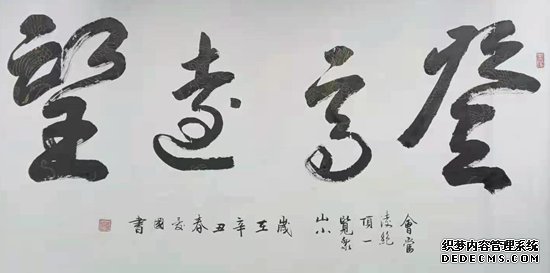 登高遠望
會當
凌絕
頂一
覽眾
山小
歲在辛丑春國書
织梦内容管理系统
DEDECMS.COM